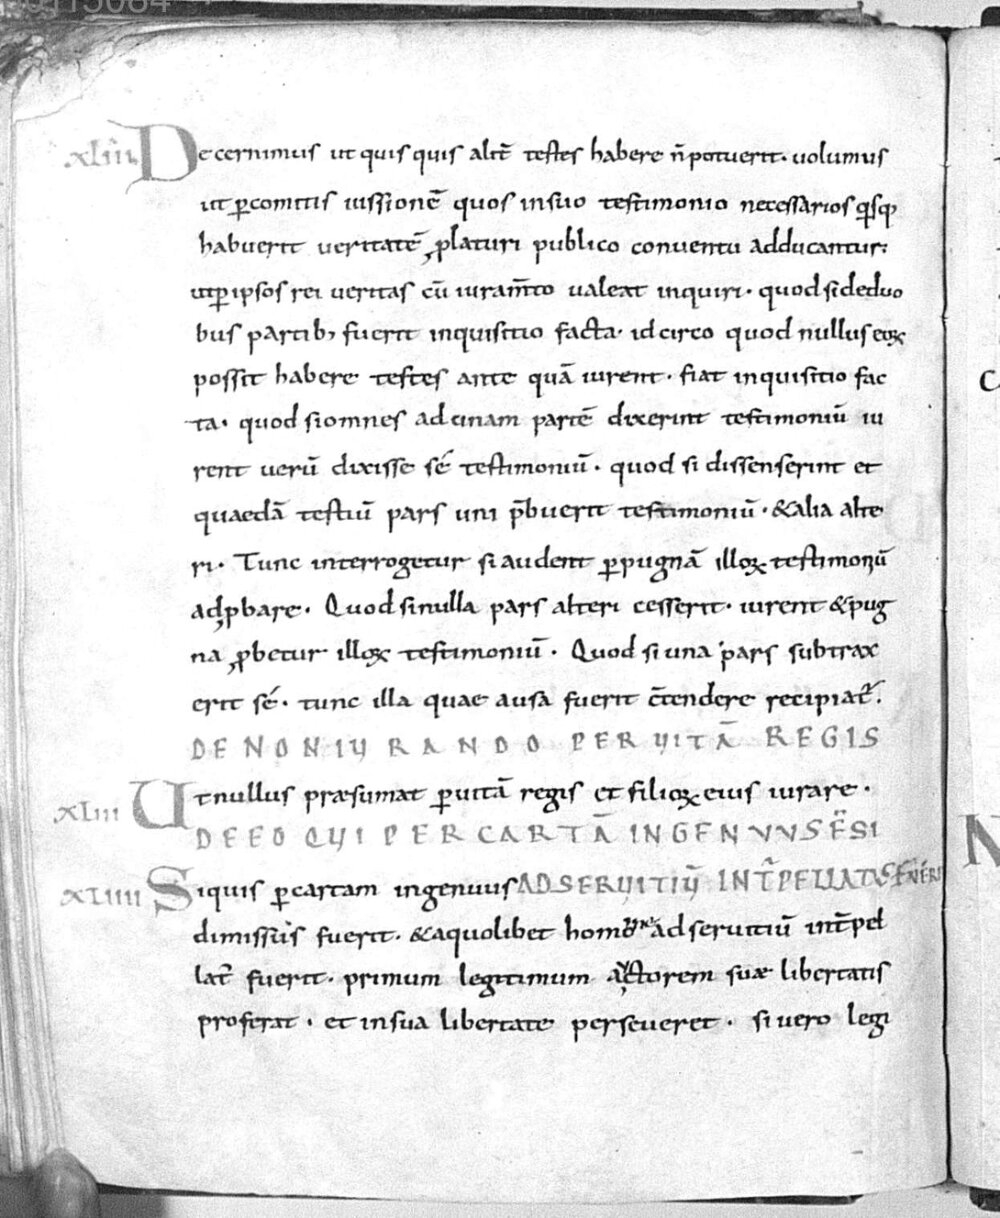 xLIII Decernimus ut quis quis alt̄e testes habere n̄ potuerit. uolumus
ut ꝑcomitis iussionē quos insuo testimonio necessarios qsq;
habuerit ueritatē ꝓlaturi publico conuentu adducantur.
utꝑ ipsos rei ueritas cū iuram̄to ualeat inquiri. quod sideduo
bus partib; fuerit inquisitio facta. id circo quod nullus eoꝝ
possit habere testes ante quā iurent. fiat inquisitio fac
ta. quod siomnes ad unam partē dixerint testimoniū iu
rent uerū dixisse sé testimoniū. quod si dissenserint et
quaedā testiū pars uni p̄buerit testimoniū. &alia alte
ri. Tunc interrogetur si audent ꝑpugnā illoꝝ testimoniū
adꝓbare. Quod sinulla pars alteri cesserit. iurent &pug
na ꝓbetur illoꝝ testimoniū. Quod si una pars subtrax
erit sé. tunc illa quae ausa fuerit c̄tendere recipiat̄.
DE NON IURANDO PER UITĀ REGIS
xLIII Ut nullus praesumat ꝑuitā regis et filioꝝ eius iurare.
DE EO QUI PER CARTĀ INGENUUS
xLIIII Siquis ꝑcartam ingenuus AD SERUITIŪ INT̄PELLATUS
dimissus fuerit. &aquolibet ad seruitiū int̄pel
lat̄ fuerit. primum legitimum auctorem suae libertatis
proferat. et insua libertate perseueret. si uero legi